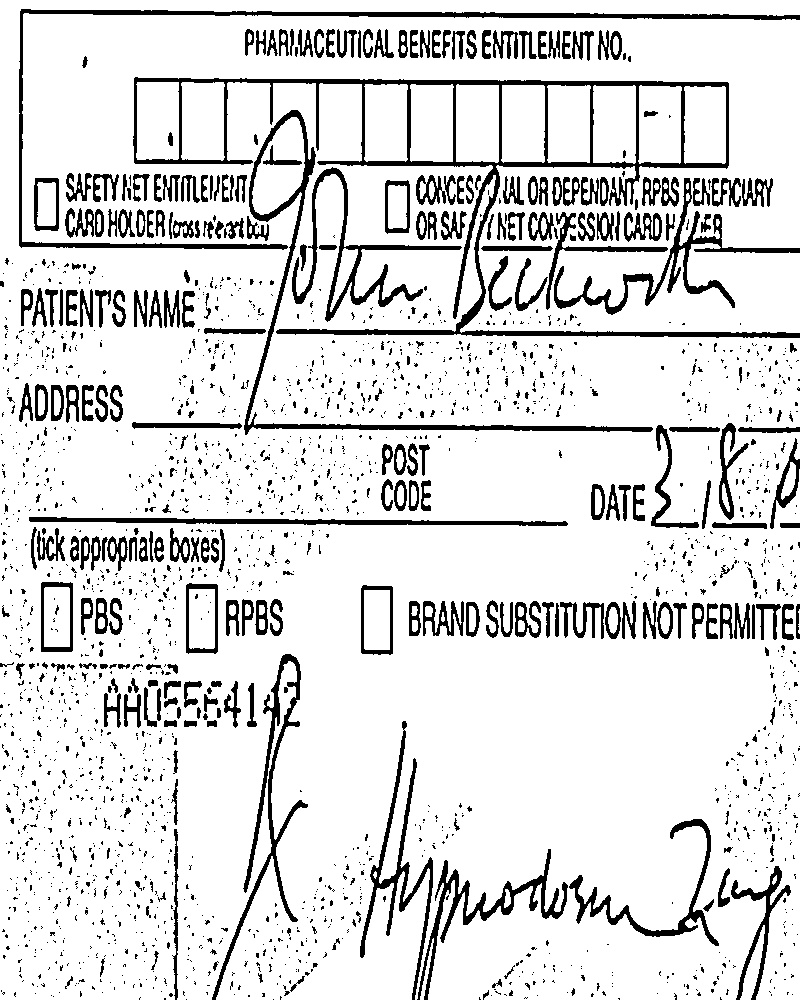 PHARMACEUTICAL BENEFITS ENTITLEMENT NO.
SAFETY NET ENTITLEMENT
CARD HOLDER (cross relevant box)
CONCESSIONAL OR DEPENDANT, RPBS BENEFICIARY
OR SAFETY NET CONCESSION CARD HOLDER
PATIENT'S NAME John Beckworth
ADDRESS
POST
CODE
DATE 3/8/
(tick appropriate boxes)
PBS RPBS BRAND SUBSTITUTION NOT PERMITTED
AA05564142
Rx Hypnodorm 2mg